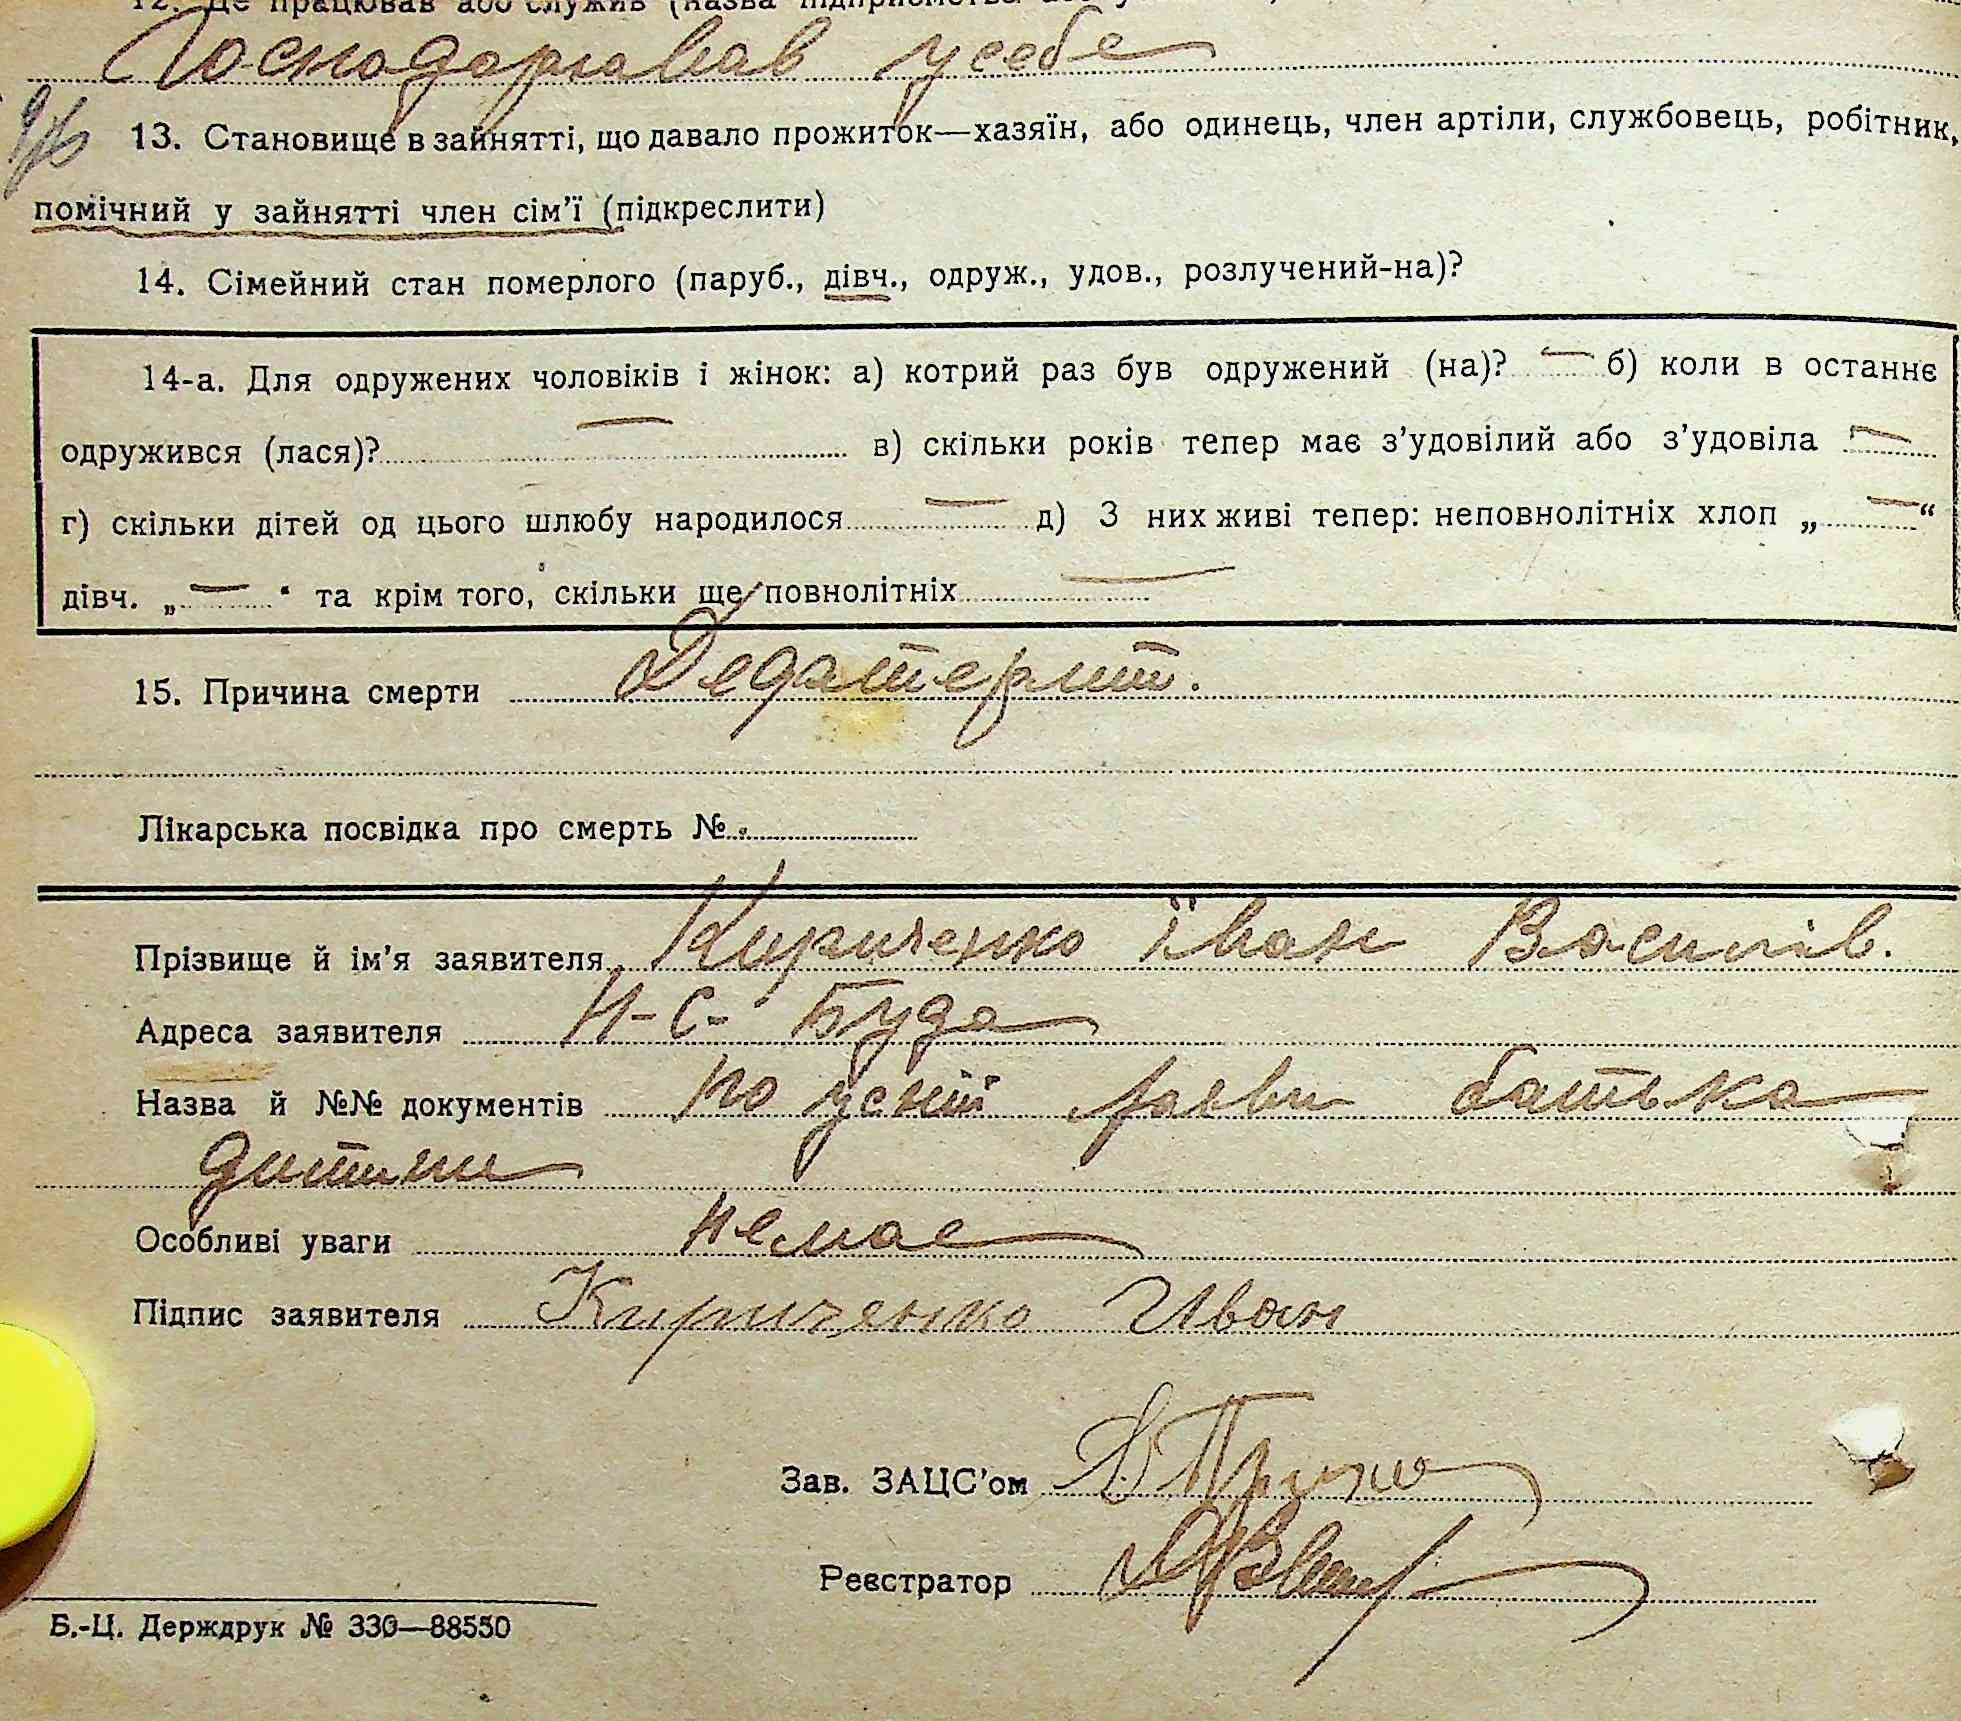 12. Де працював або служив (назва підприємства
Господарював у себе
13. Становище в зайнятті, що давало прожиток—хазяїн, або одинець, член артіли, службовець, робітник,
помічний у зайнятті член сім'ї (підкреслити)
14. Сімейний стан померлого (паруб., дівч., одруж., удов., розлучений-на)?
14-а. Для одружених чоловіків і жінок: а) котрий раз був одружений (на)? — б) коли в останнє
одружився (лася)? — в) скільки років тепер має з'удовілий або з'удовіла —
г) скільки дітей од цього шлюбу народилося — д) З них живі тепер: неповнолітніх хлоп „—“
дівч. „—“ та крім того, скільки ще повнолітніх —
15. Причина смерти
Лікарська посвідка про смерть №
Прізвище й ім'я заявителя Кириченко Іван Василів.
Адреса заявителя Н-С- Буда
Назва й №№ документів по усній заяви батька
дитини
Особливі уваги немає
Підпис заявителя Кириченко Иван
Зав. ЗАЦС'ом
Реєстратор
Б.-Ц. Держдрук № 330—88550